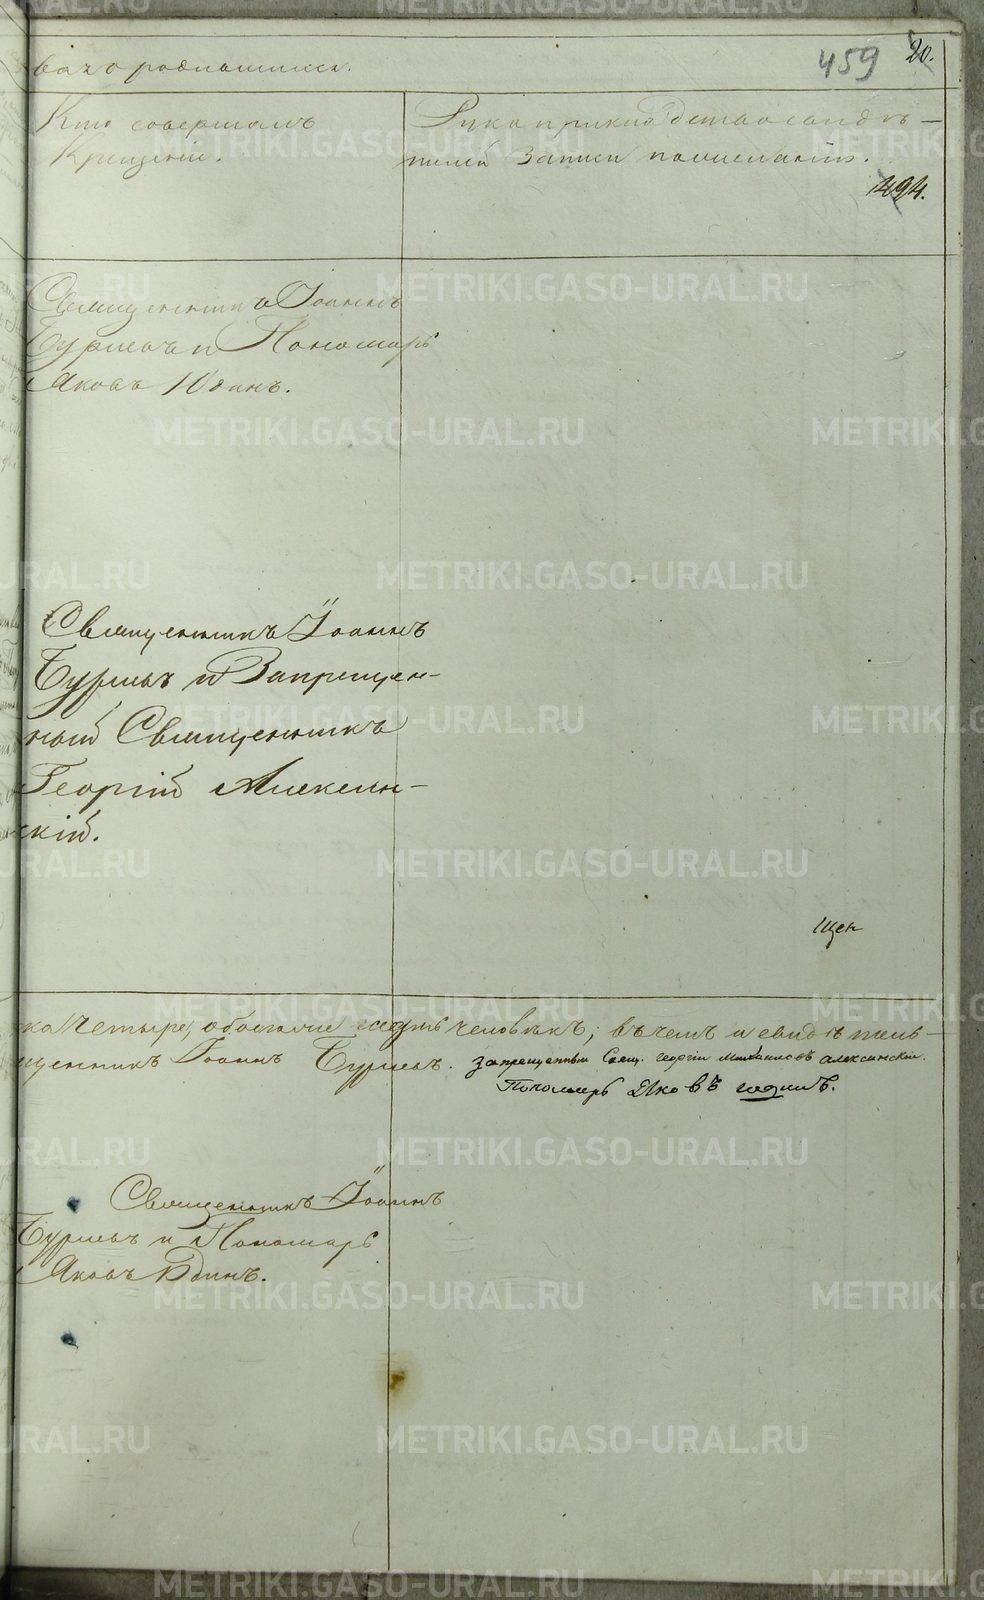 459 20.
Кто совершалъ
Крещеніе.
Рукоприкладство свидѣ-
телей записи по желанію.
494.
Священникъ Іоаннъ
Бурмевъ и Пономарь
Яковъ Юдинъ.
Священникъ Іоаннъ
Бурмевъ и Запрещен-
ный Священникъ
Георгій Алексин-
скій.
щен
ка четыре, обоего человѣкъ; въ чемъ и свидѣтель-
щенникъ Іоаннъ Бурмевъ. запрещенный Свящ. георгіи алексинскіи.
Пономарь Яковъ юдинъ.
Священникъ Іоаннъ
Бурмевъ и Пономарь
Яковъ Юдинъ.
METRIKI.GASO-URAL.RU